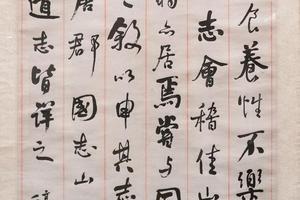 食養性不樂
志會稽佳山
亦居焉嘗與同
之敘以申其志
居郡國志山
道志皆詳之